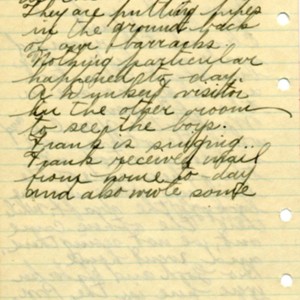 They are putting pipes
in the ground back
of our barracks
Nothing particular
happened to day.
A visitor
in the other room
to see the boys.
Frank is singing..
Frank received mail
from home to-day
and also wrote some